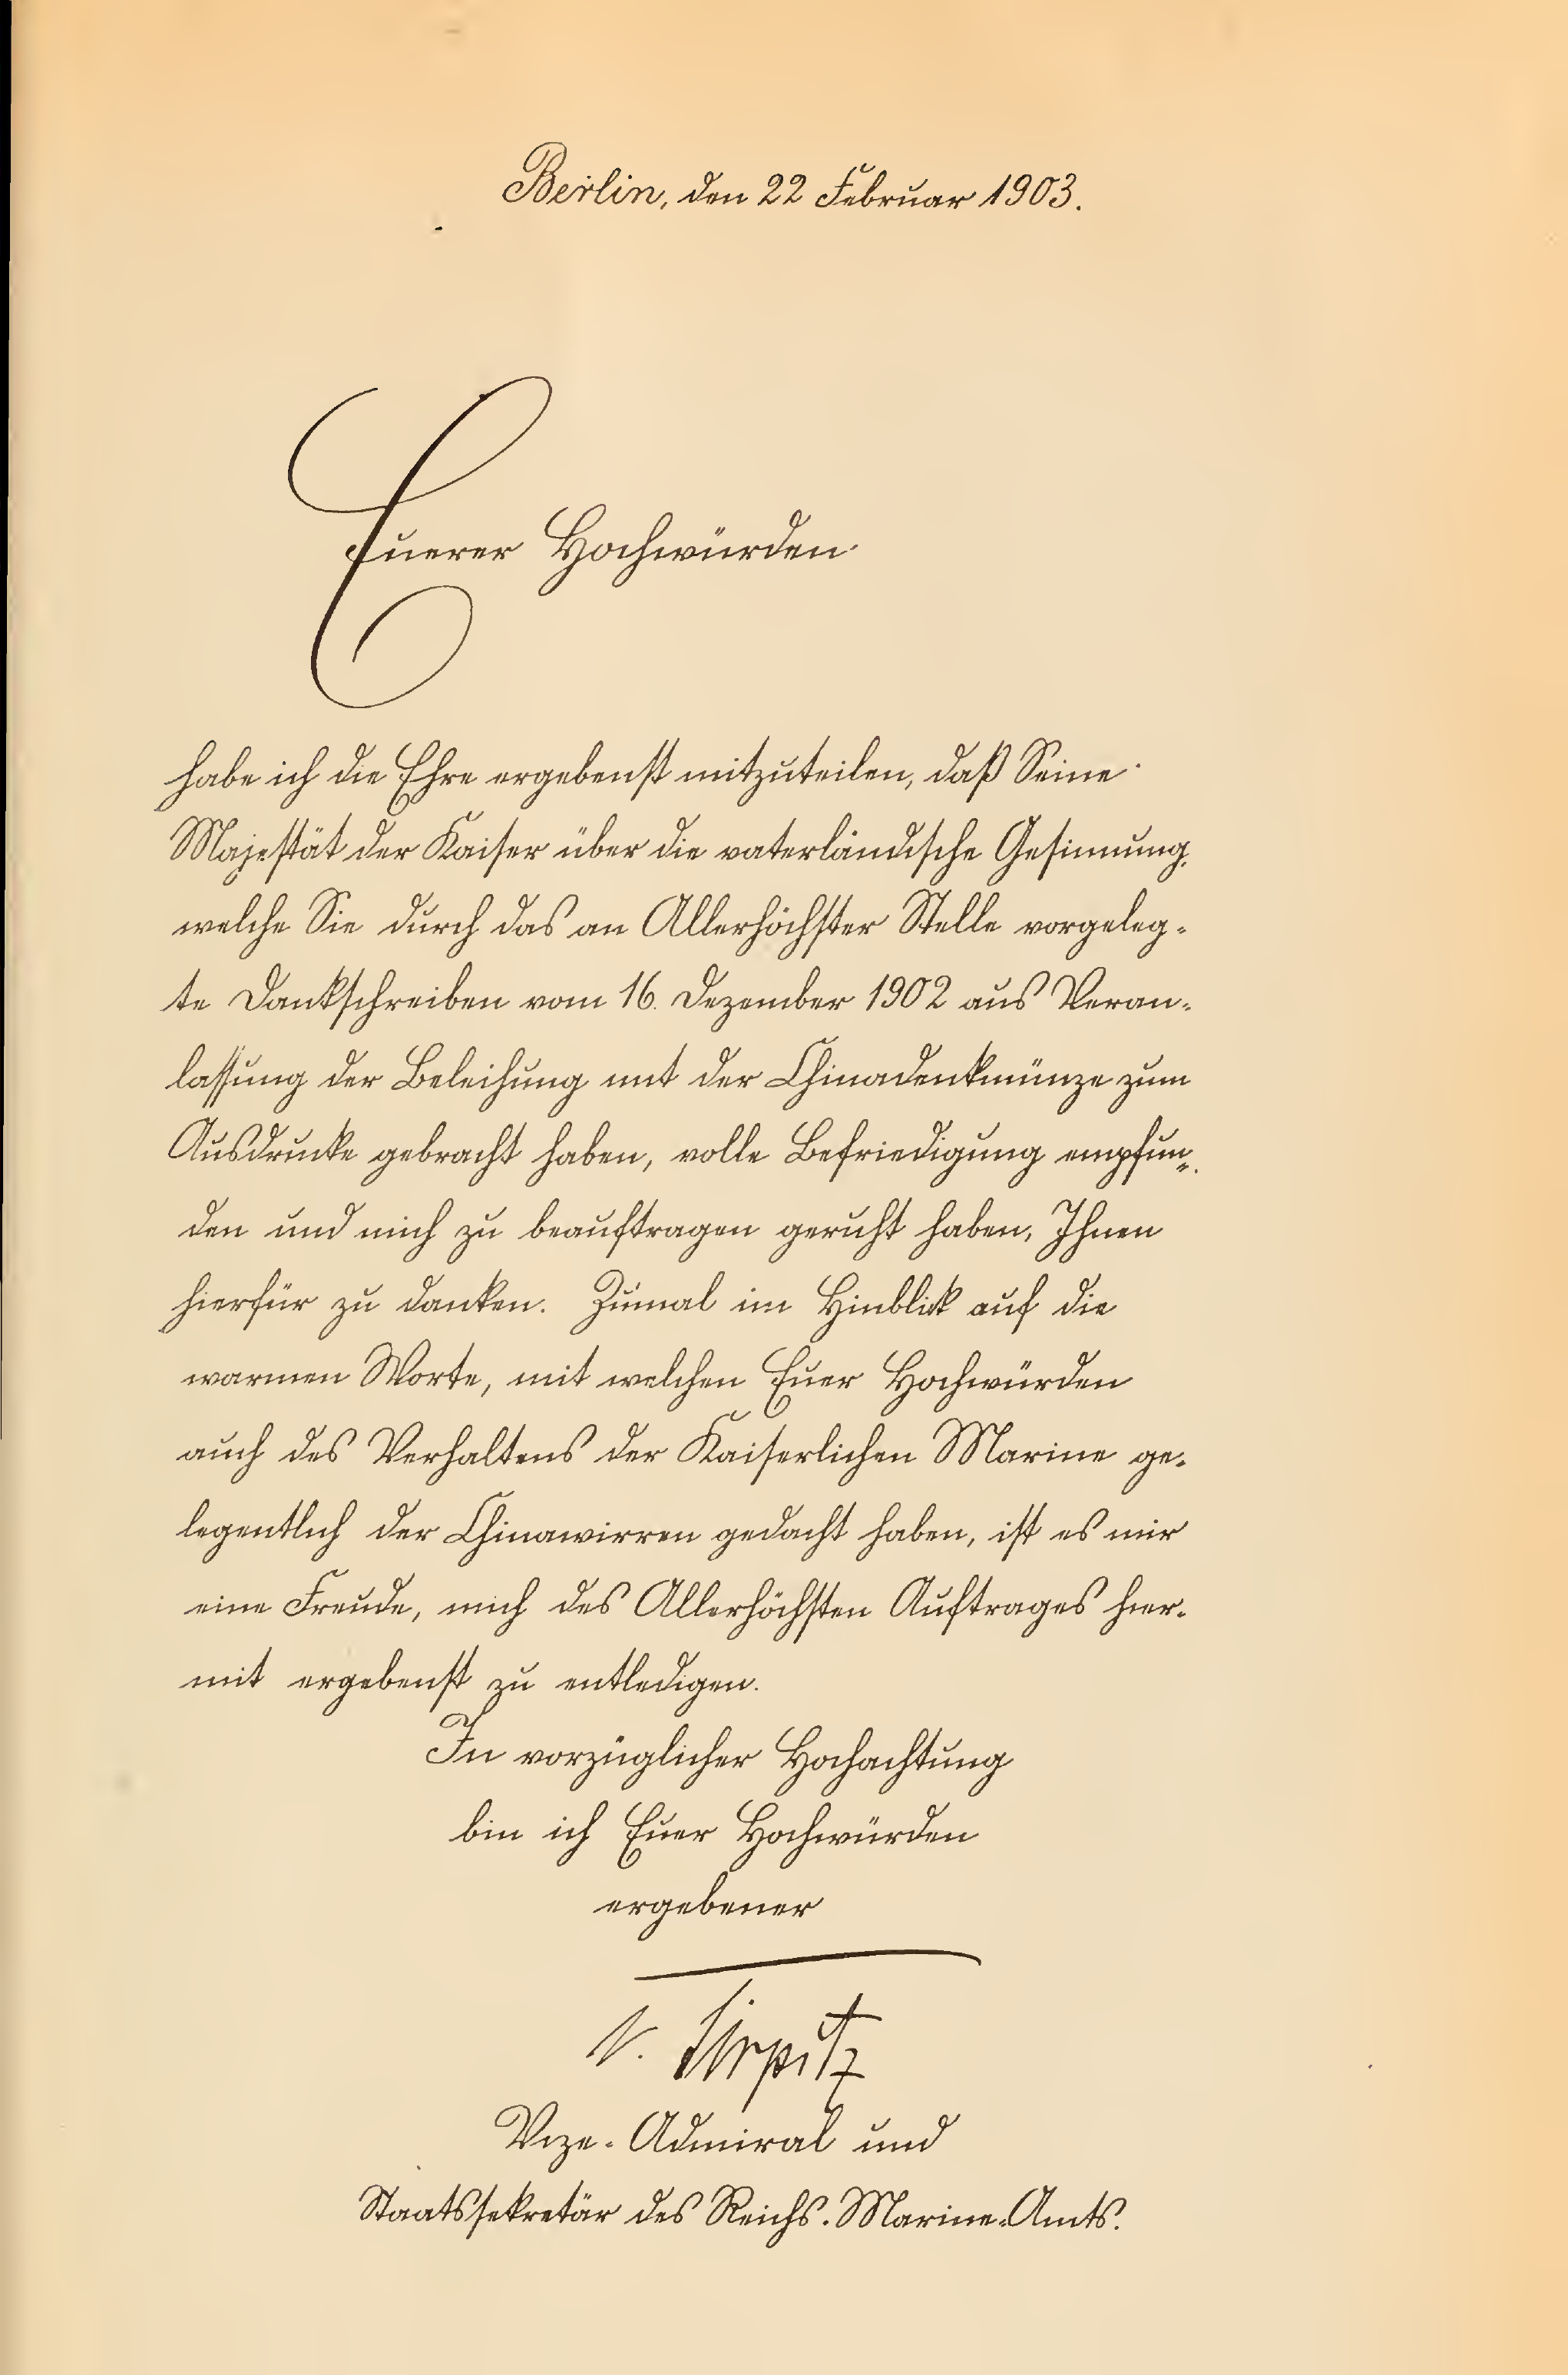 Berlin, den 22 Februar 1903.
Euerer Hochwürden
habe ich die Ehre ergebenst mitzuteilen, daß Seine
Majestät der Kaiser über die vaterländische Gesinnung,
welche Sie durch das an Allerhöchster Stelle vorgeleg-
te Dankschreiben vom 16. Dezember 1902 aus Veran-
lassung der Beleihung mit der Chinadenkmünze zum
Ausdrucke gebracht haben, volle Befriedigung empfun-
den und mich zu beauftragen geruht haben, Ihnen
hierfür zu danken. Zumal im Hinblick auf die
warmen Worte, mit welchen Euer Hochwürden
auch des Verhaltens der Kaiserlichen Marine ge-
legentlich der Chinawirren gedacht haben, ist es mir
eine Freude, mich des Allerhöchsten Auftrages hier-
mit ergebenst zu entledigen.
In vorzüglicher Hochachtung
bin ich Euer Hochwürden
ergebener
v. Tirpitz
Vize-Admiral und
Staatssekretär des Reichs-Marine-Amts.